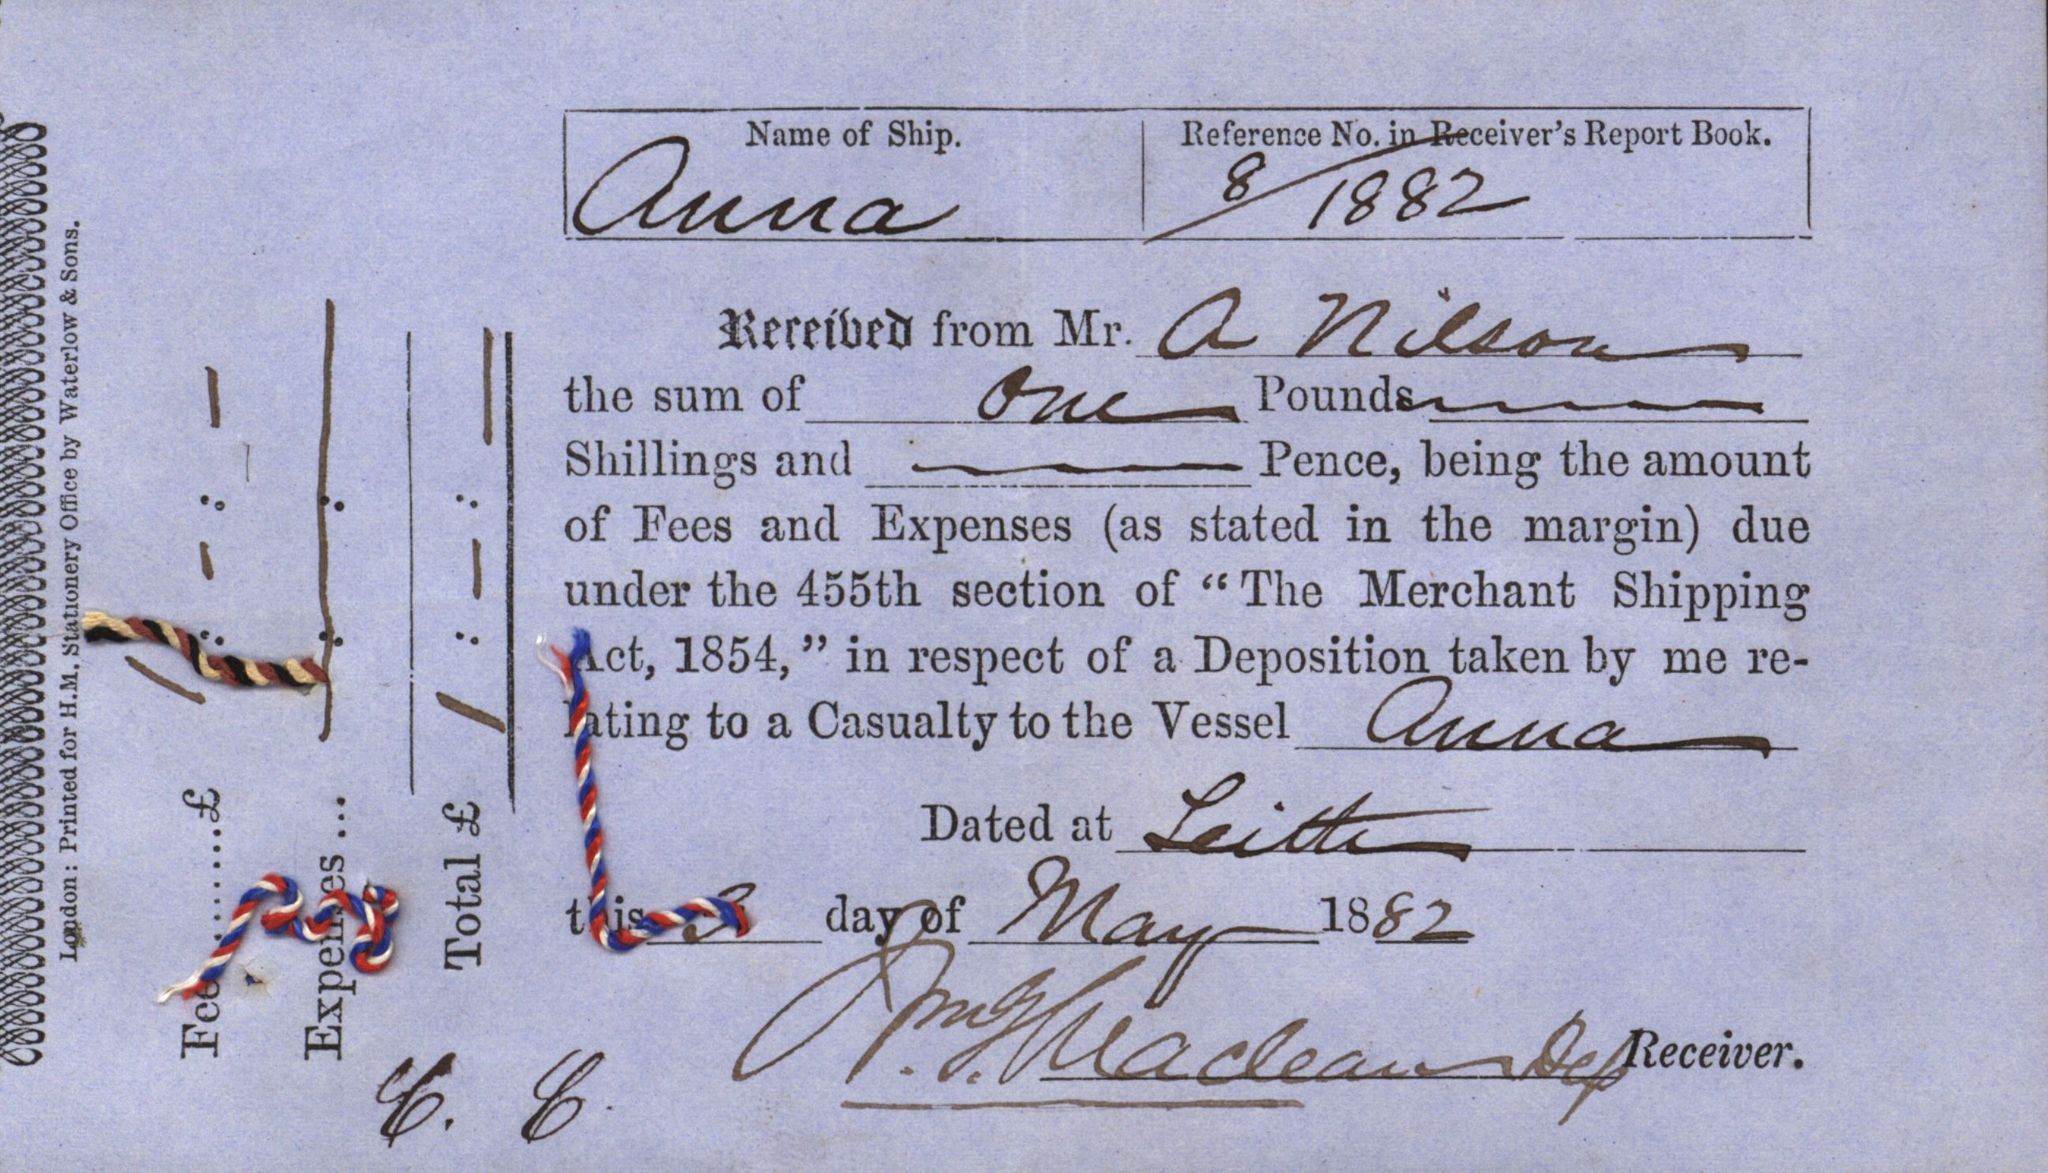 Name of Ship. Reference No. in Receiver's Report Book.
Anna 8/1882
Received from Mr. A Nilson
the sum of One Pounds
Shillings and Pence, being the amount
of Fees and Expenses (as stated in the margin) due
under the 455th section of “The Merchant Shipping
Act, 1854,” in respect of a Deposition taken by me re-
lating to a Casualty to the Vessel Anna
Dated at Leith
this 3 day of May 1882
Maclean Dep Receiver.
C. C.
Fee.......£ 1 : - : -
Expenses ... : :
Total £ 1 : - : -
London: Printed for H.M. Stationery Office by Waterlow & Sons.